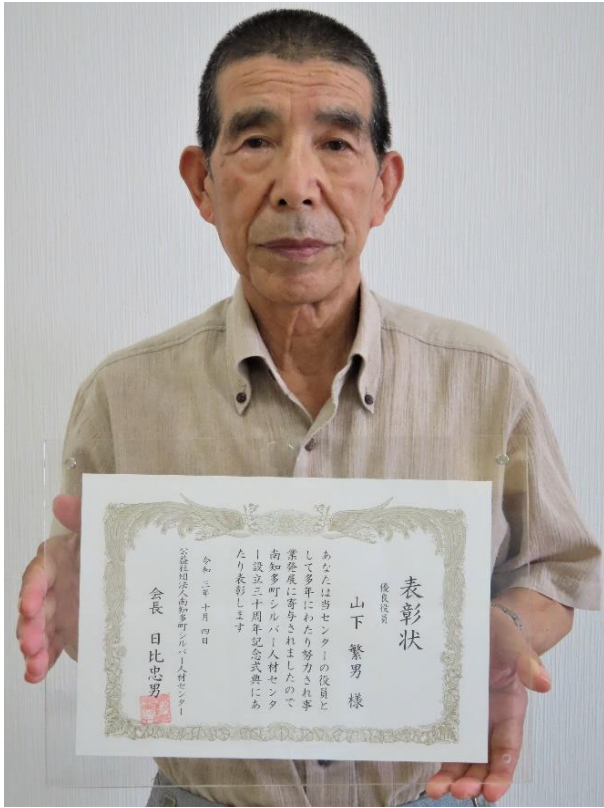 表彰状
優良役員
山下繁男様
あなたは当センターの役員と
して多年にわたり努力され事
業発展に寄与されましたので
南知多町シルバー人材センタ
ー設立三十周年記念式典にあ
たり表彰します
令和三年十月四日
公益社団法人南知多町シルバー人材センター
会長 日比忠男